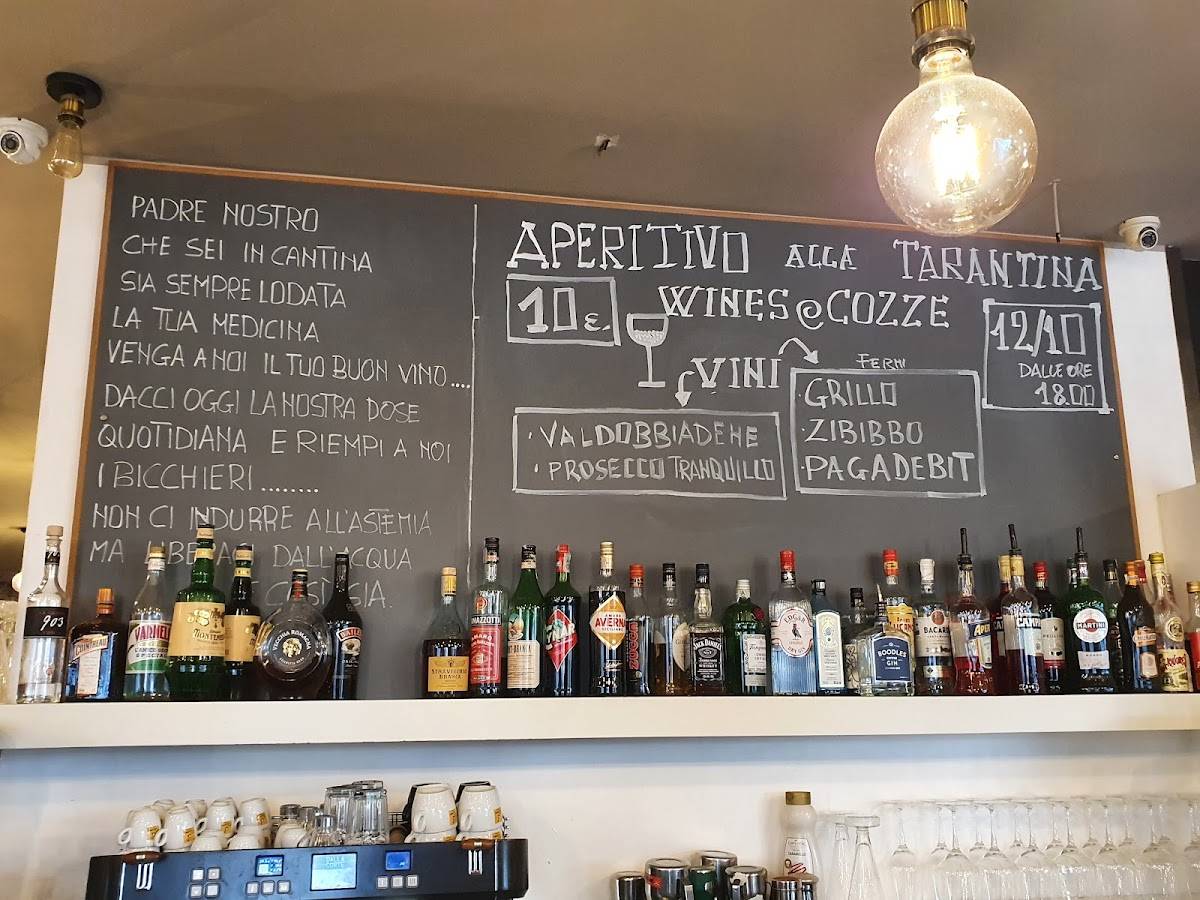 PADRE NOSTRO
CHE SEI IN CANTINA
SIA SEMPRE LODATA
LA TUA MEDICINA
VENGA A NOI IL TUO BUON VINO....
DACCI OGGI LA NOSTRA DOSE
QUOTIDIANA E RIEMPI A NOI
I BICCHIERI........
NON CI INDURRE ALL'ASTEMIA
MA LIBERACI DALL'ACQUA
COSÌ SIA.
APERITIVO ALLA TARANTINA
10 €.
WINES e COZZE
12/10
DALLE ORE
18.00
VINI
FERMI
· VALDOBBIADENE
· PROSECCO TRANQUILLO
· GRILLO
· ZIBIBBO
· PAGADEBIT
903
COINTREAU
VARNELLI
VECCHIA ROMAGNA
STRAVECCHIO
BRANCA
RAMAZZOTTI
AMARO
AVERNA
ZUCCA
JACK DANIEL'S
Tanqueray
EDGAR
BOODLES
GIN
BACARDI
MARTINI